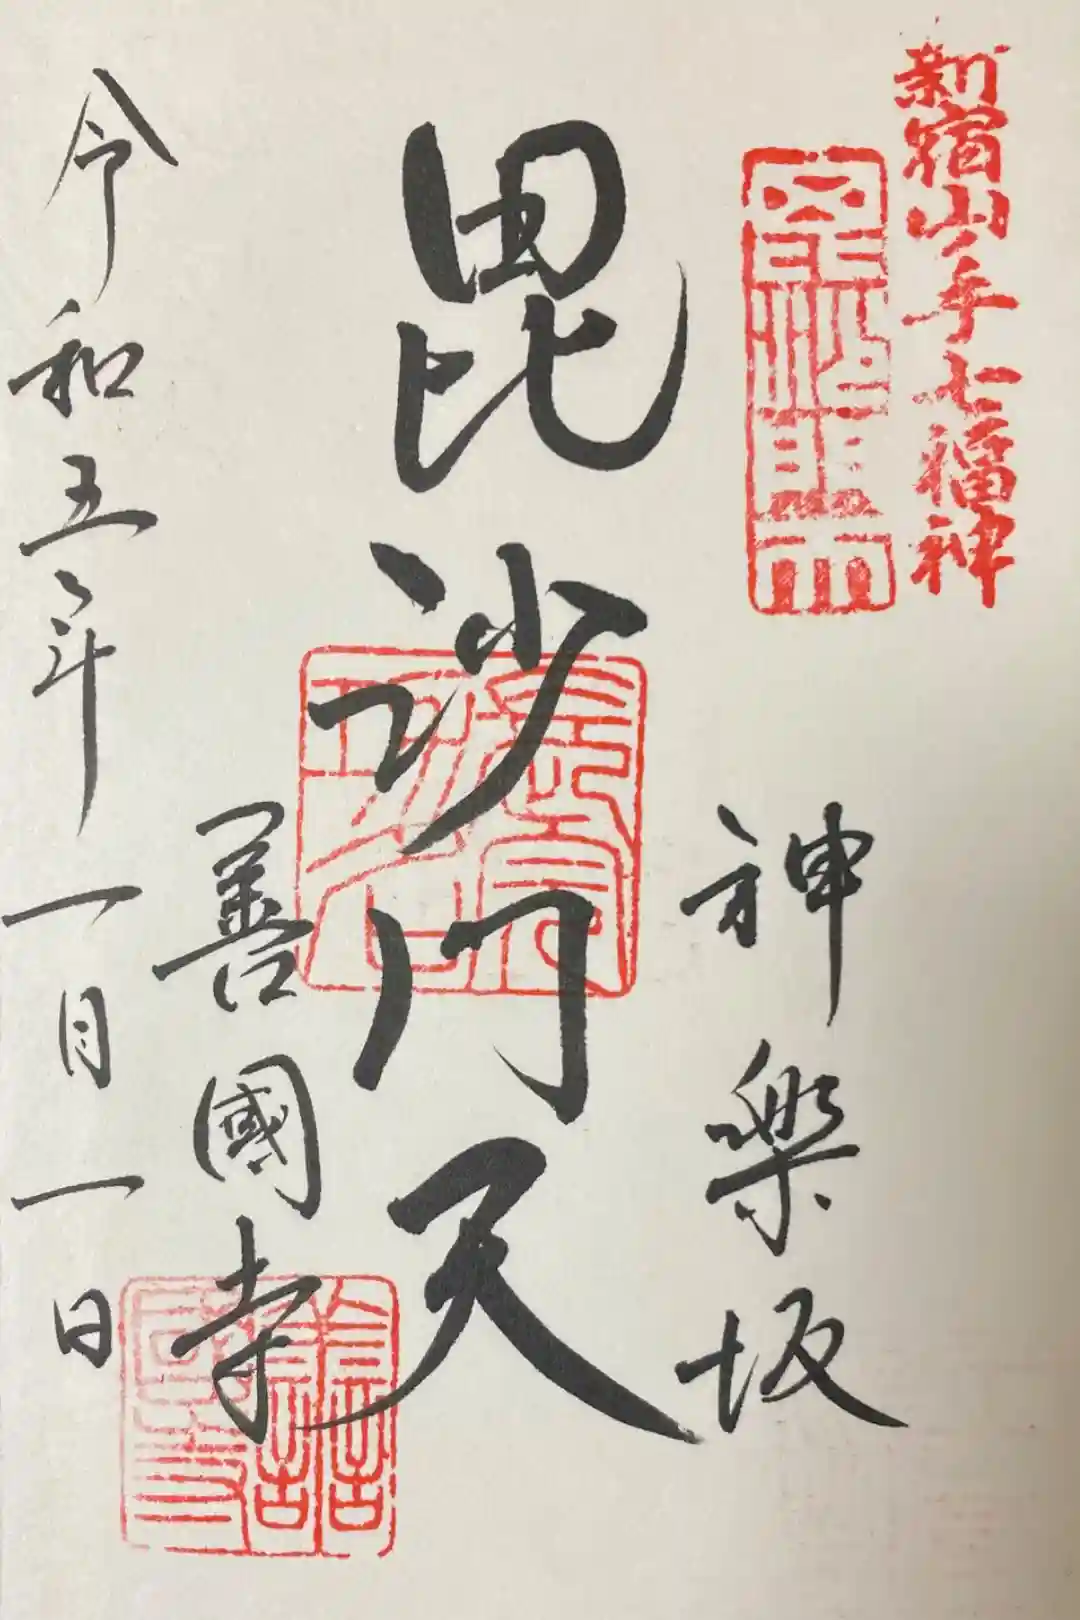 新宿山ノ手七福神
神楽坂
毘沙門天
善國寺
令和五年一月一日
善國寺